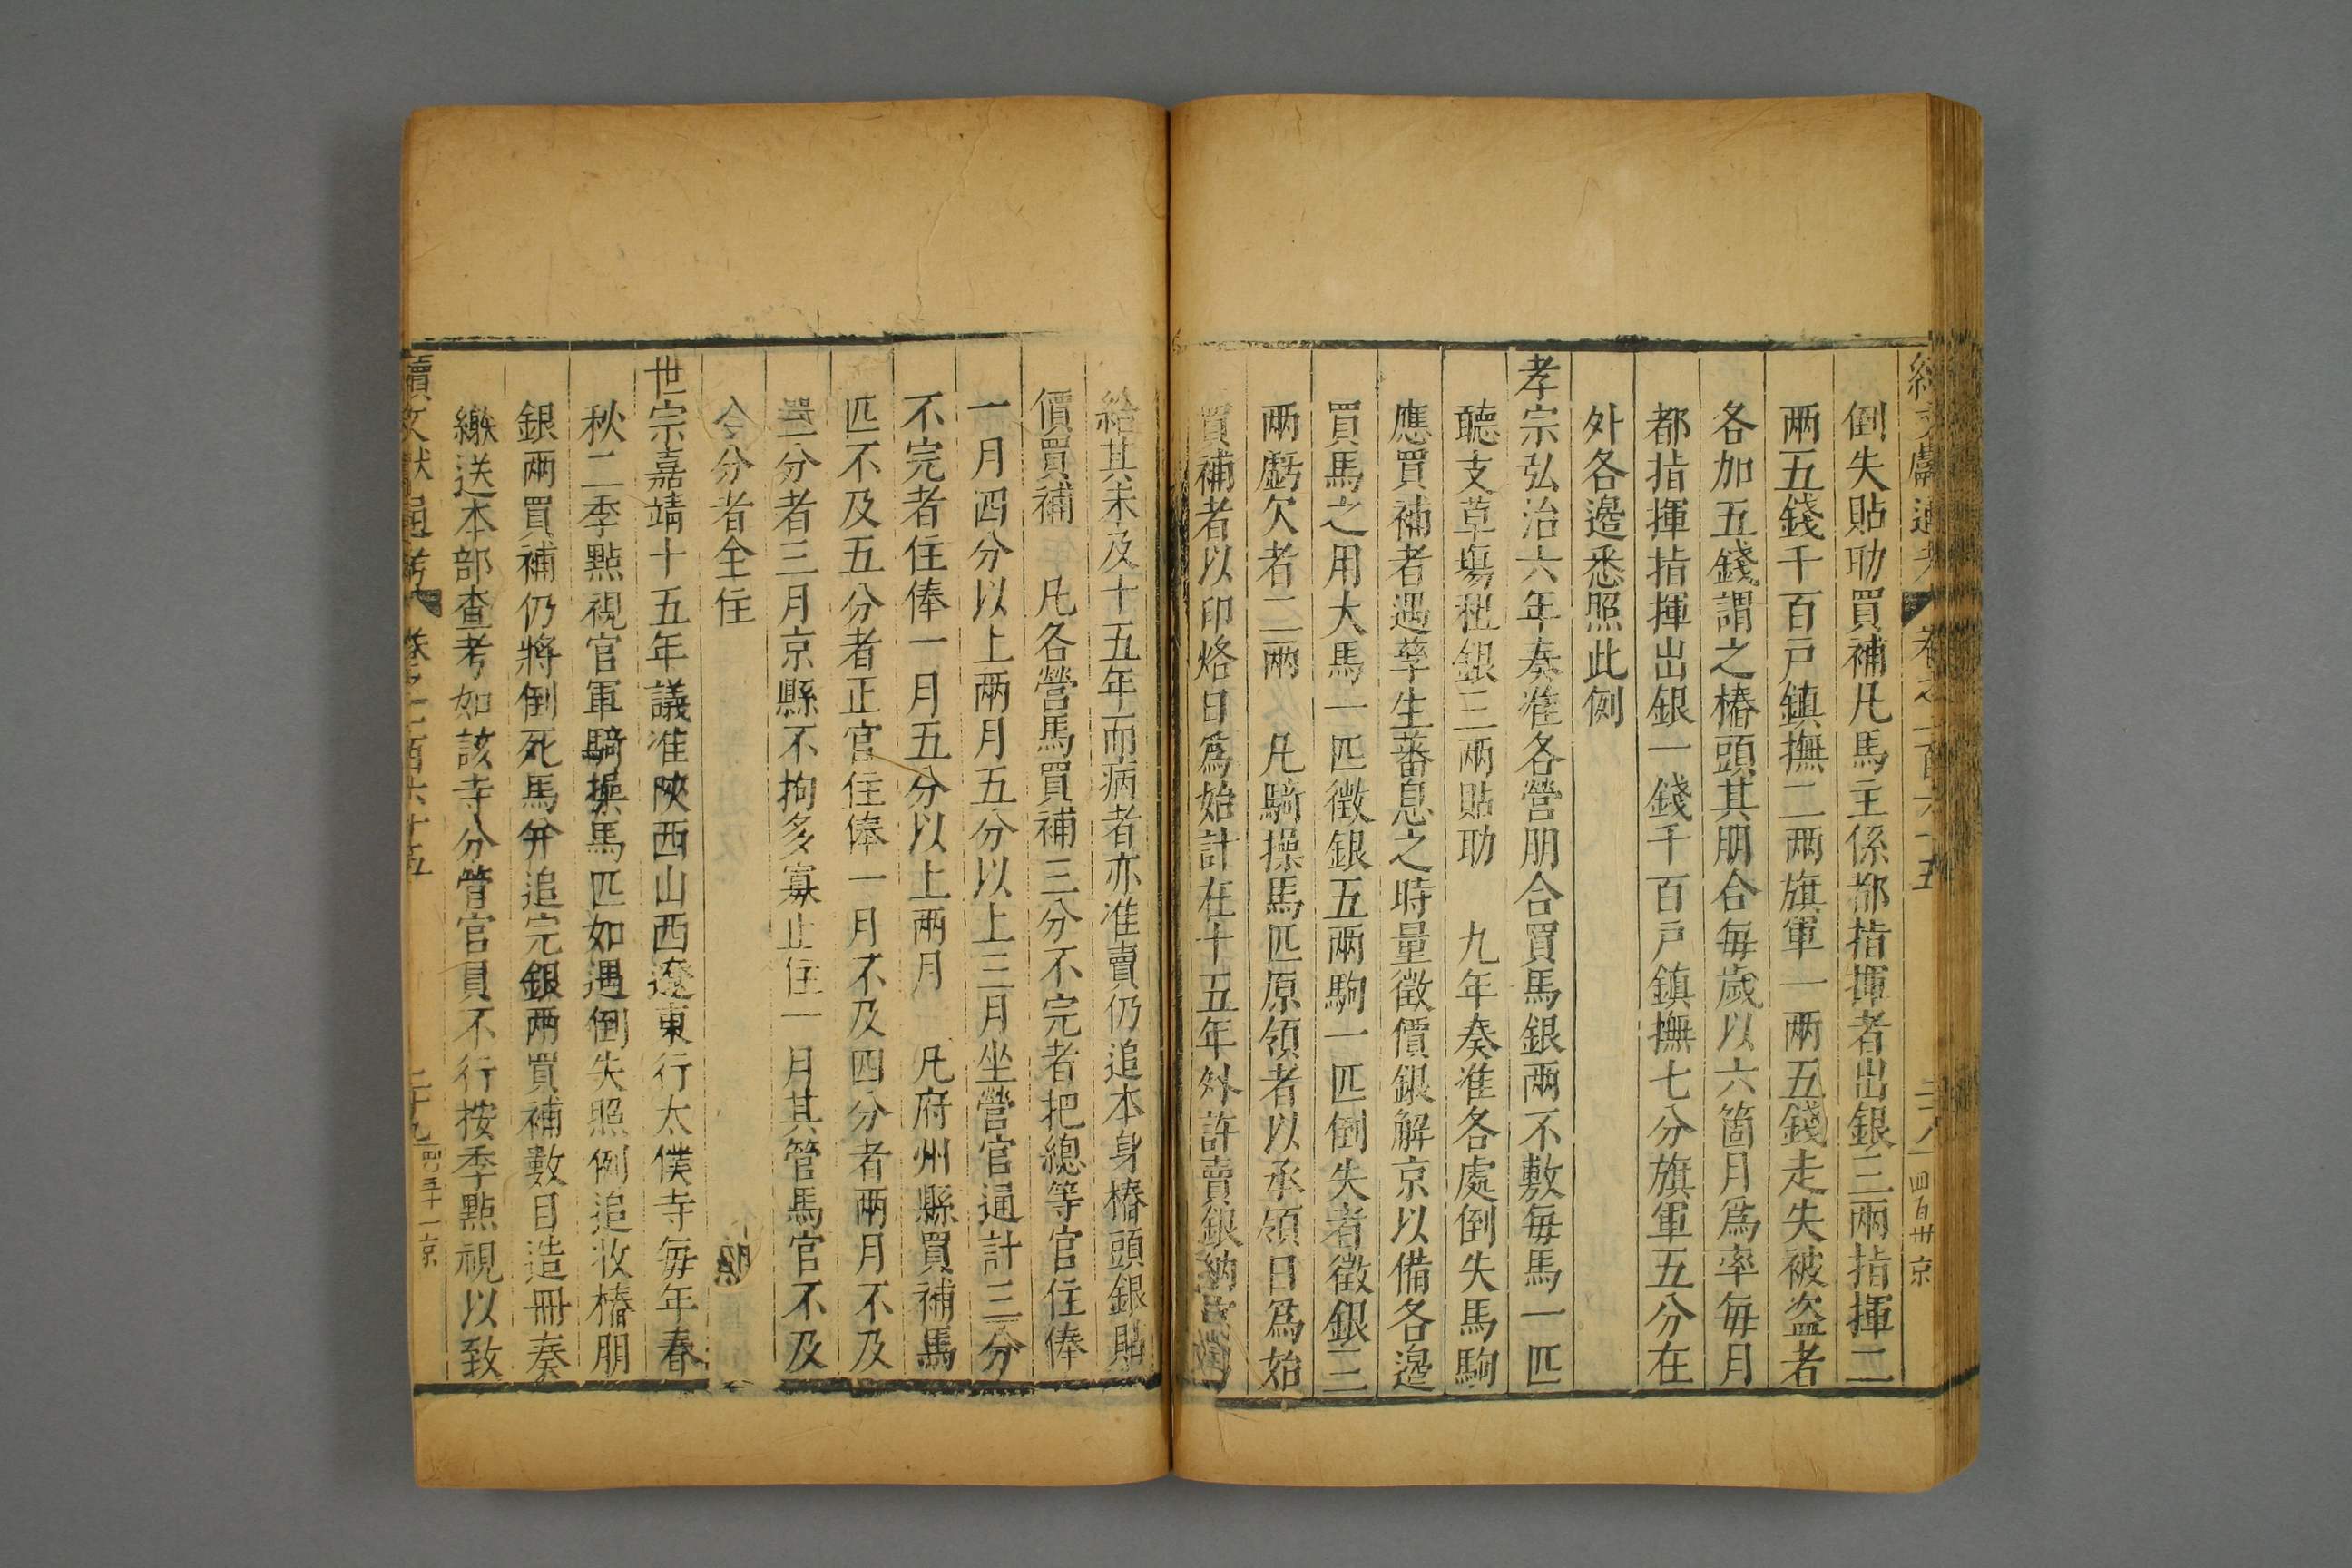 續文獻通考 卷之一百六十五 二十八 四百卅 京
倒失貼助買補凡馬主係都指揮者出銀三兩指揮二
兩五錢千百戸鎮撫二兩旗軍一兩五錢走失被盗者
各加五錢謂之樁頭其朋合每歲以六箇月爲率每月
都指揮指揮出銀一錢千百戸鎮撫七分旗軍五分在
外各邊悉照此例
孝宗弘治六年奏准各營朋合買馬銀兩不敷每馬一匹
聽支草塲租銀三兩貼助 九年奏准各處倒失馬駒
應買補者遇孳生蕃息之時量徵價銀解京以備各邊
買馬之用大馬一匹徵銀五兩駒一匹倒失者徵銀三
兩虧欠者二兩 凡騎操馬匹原領者以承領日爲始
買補者以印烙日爲始計在十五年外許賣銀納
給其未及十五年而病者亦准賣仍追本身樁頭銀貼
價買補 凡各營馬買補三分不完者把總等官住俸
一月四分以上兩月五分以上三月坐營官通計三分
不完者住俸一月五分以上兩月 凡府州縣買補馬
匹不及五分者正官住俸一月不及四分者兩月不及
三分者三月京縣不拘多寡止住一月其管馬官不及
令分者全住
世宗嘉靖十五年議准陝西山西遼東行太僕寺每年春
秋二季點視官軍騎操馬匹如遇倒失照例追收樁朋
銀兩買補仍將倒死馬并追完銀兩買補數目造冊奏
繳送本部查考如該寺分管官員不行按季點視以致
續文獻通考 卷之一百六十五 二十九 五十一 京